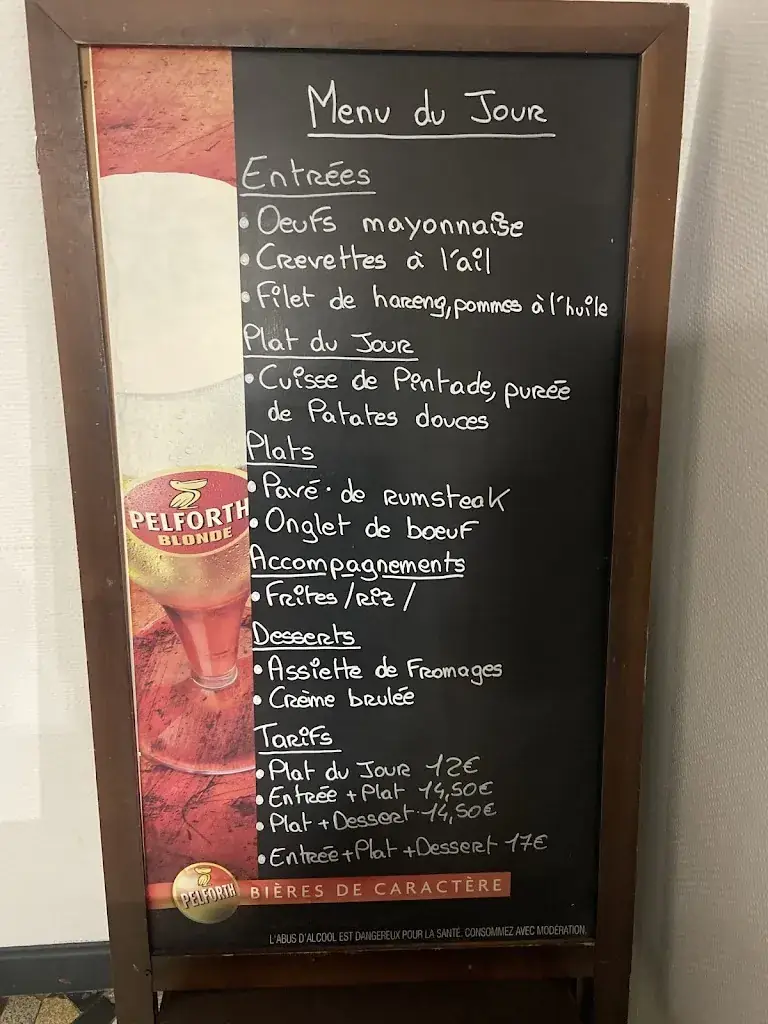 Menu du Jour
Entrées
• Oeufs mayonnaise
• Crevettes à l'ail
• Filet de hareng, pommes à l'huile
Plat du Jour
• Cuisse de Pintade, purée
de Patates douces
Plats
• Pavé de rumsteak
• Onglet de boeuf
Accompagnements
• Frites /riz /
Desserts
• Assiette de Fromages
• Crème brulée
Tarifs
• Plat du Jour 12€
• Entrée + Plat 14,50€
• Plat + Dessert 14,50€
• Entrée + Plat + Dessert 17€
PELFORTH
BLONDE
PELFORTH BIÈRES DE CARACTÈRE
L'ABUS D'ALCOOL EST DANGEREUX POUR LA SANTÉ. CONSOMMEZ AVEC MODÉRATION.